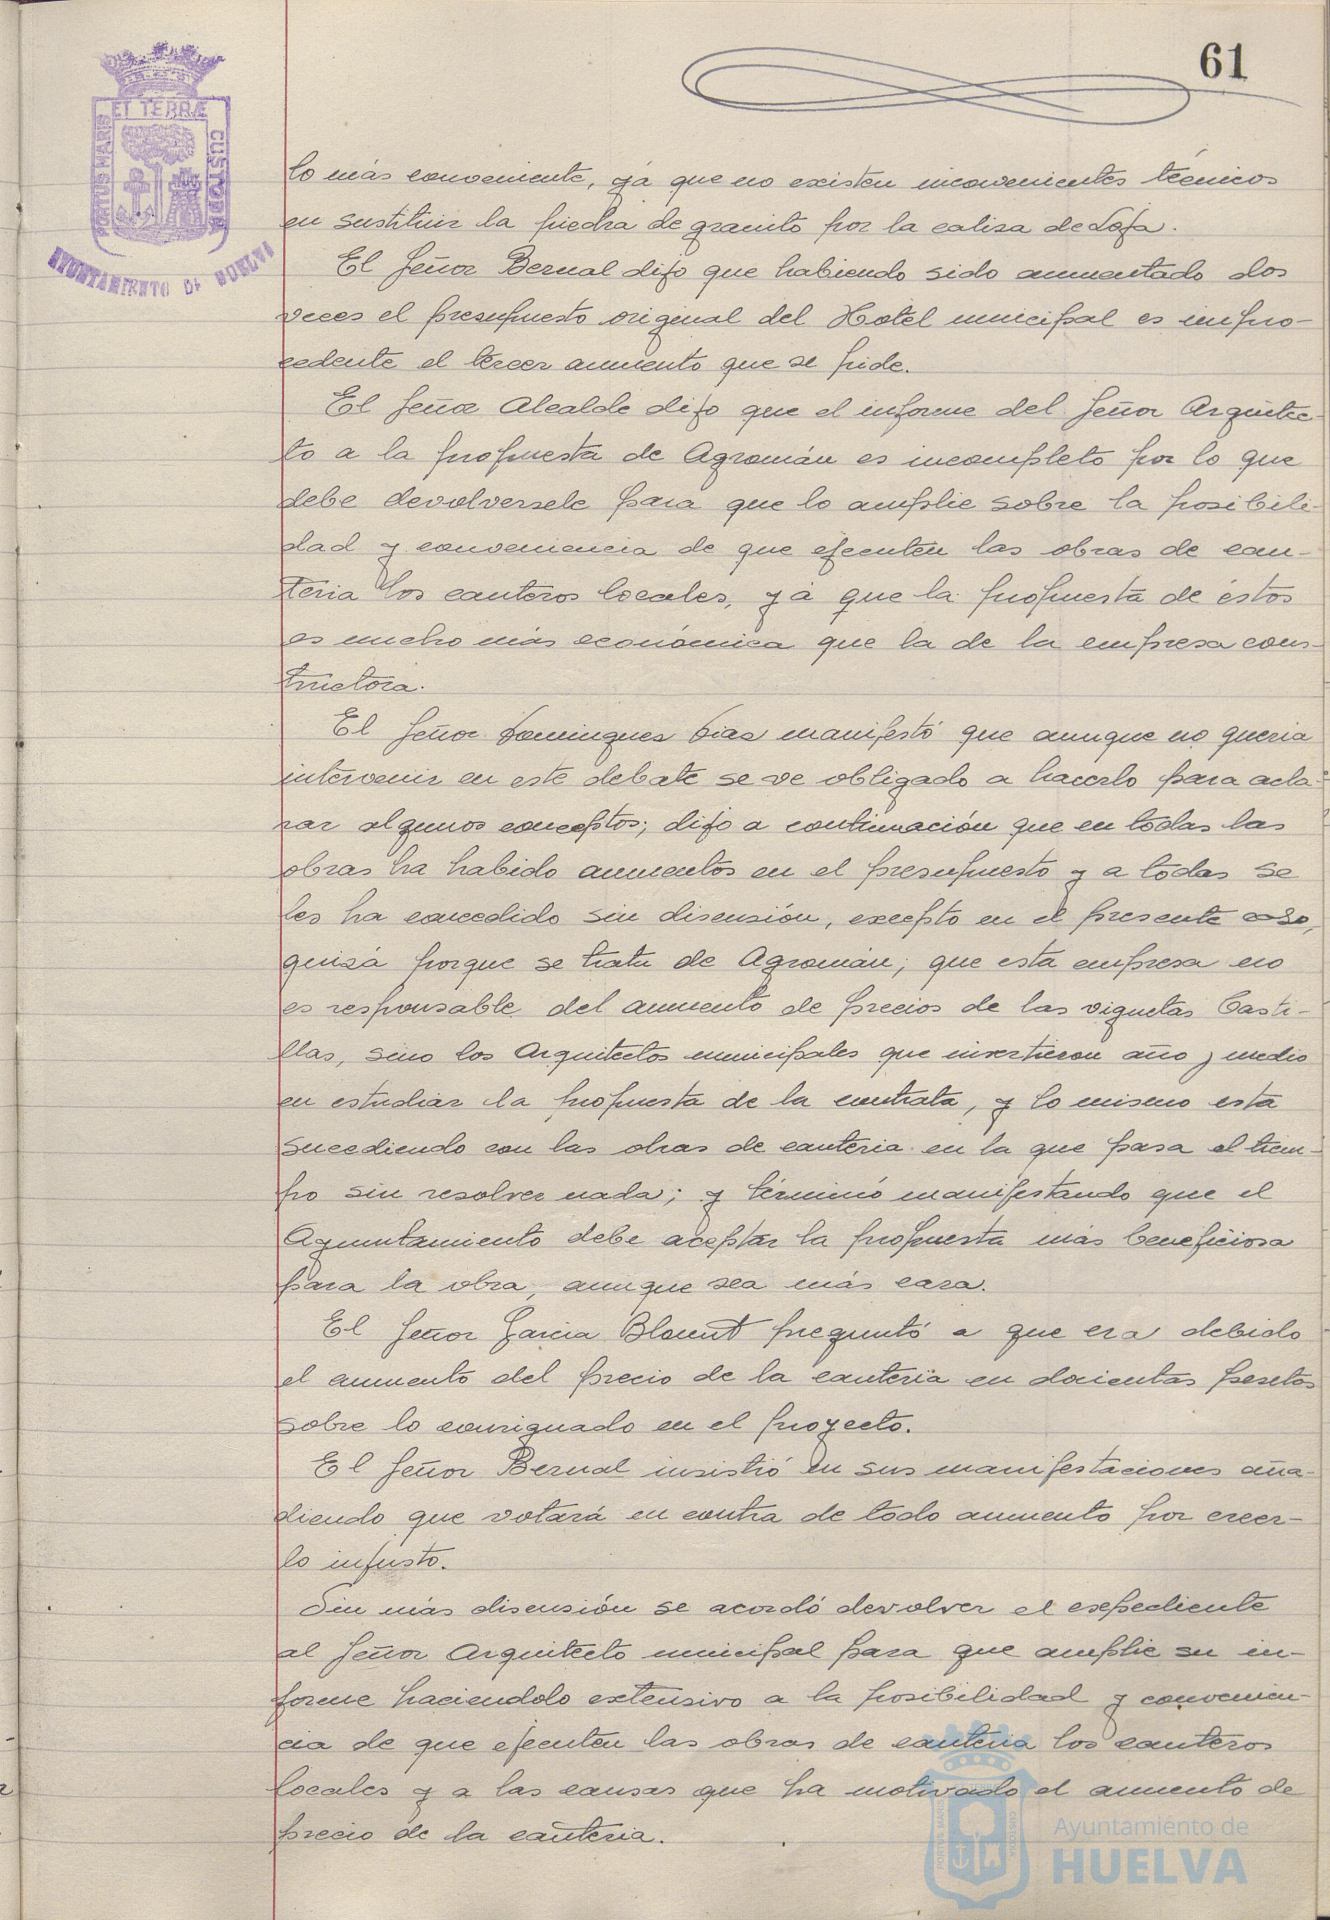 61
PORTUS MARIS ET TERRÆ CUSTODIA
AYUNTAMIENTO DE HUELVA
lo más conveniente, yá que no existen inconvenientes técnicos
en sustituir la piedra de granito por la caliza de Loja.
El Señor Bernal dijo que habiendo sido aumentado dos
veces el presupuesto original del Hotel municipal es impro-
cedente el tercer aumento que se pide.
El Señor Alcalde dijo que el informe del Señor Arquitec-
to a la propuesta de Agromán es incompleto por lo que
debe devolversele para que lo amplie sobre la posibili-
dad y conveniencia de que ejecuten las obras de can-
teria los canteros locales, yá que la propuesta de éstos
es mucho más económica que la de la empresa cons-
tructora.
El Señor Dominguez Dias manifestó que aunque no queria
intervenir en este debate se ve obligado a hacerlo para acla-
rar algunos conceptos; dijo a continuación que en todas las
obras ha habido aumentos en el presupuesto y a todas se
les ha concedido sin discusión, excepto en el presente caso,
quizá porque se trata de Agromán; que esta empresa no
es responsable del aumento de precios de las viguetas Casti-
llas, sino los Arquitectos municipales que invertieron año y medio
en estudiar la propuesta de la contrata, y lo mismo está
sucediendo con las obras de canteria en la que pasa el tiem-
po sin resolver nada; y términó manifestando que el
Ayuntamiento debe aceptar la propuesta más beneficiosa
para la obra, aunque sea más cara.
El Señor Garcia Blount preguntó a que era debido
el aumento del precio de la canteria en docientas pesetas
sobre lo consignado en el proyecto.
El Señor Bernal insistió en sus manifestaciones aña-
diendo que votará en contra de todo aumento por creer-
lo injusto.
Sin más discusión se acordó devolver el expediente
al Señor Arquitecto municipal para que amplie su in-
forme haciendolo extensivo a la posibilidad y convenien-
cia de que ejecuten las obras de canteria los canteros
locales y a las causas que ha motivado el aumento de
precio de la canteria.
PORTUS MARIS ET TERRÆ CUSTODIA
Ayuntamiento de
HUELVA